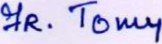 FR. Tomy